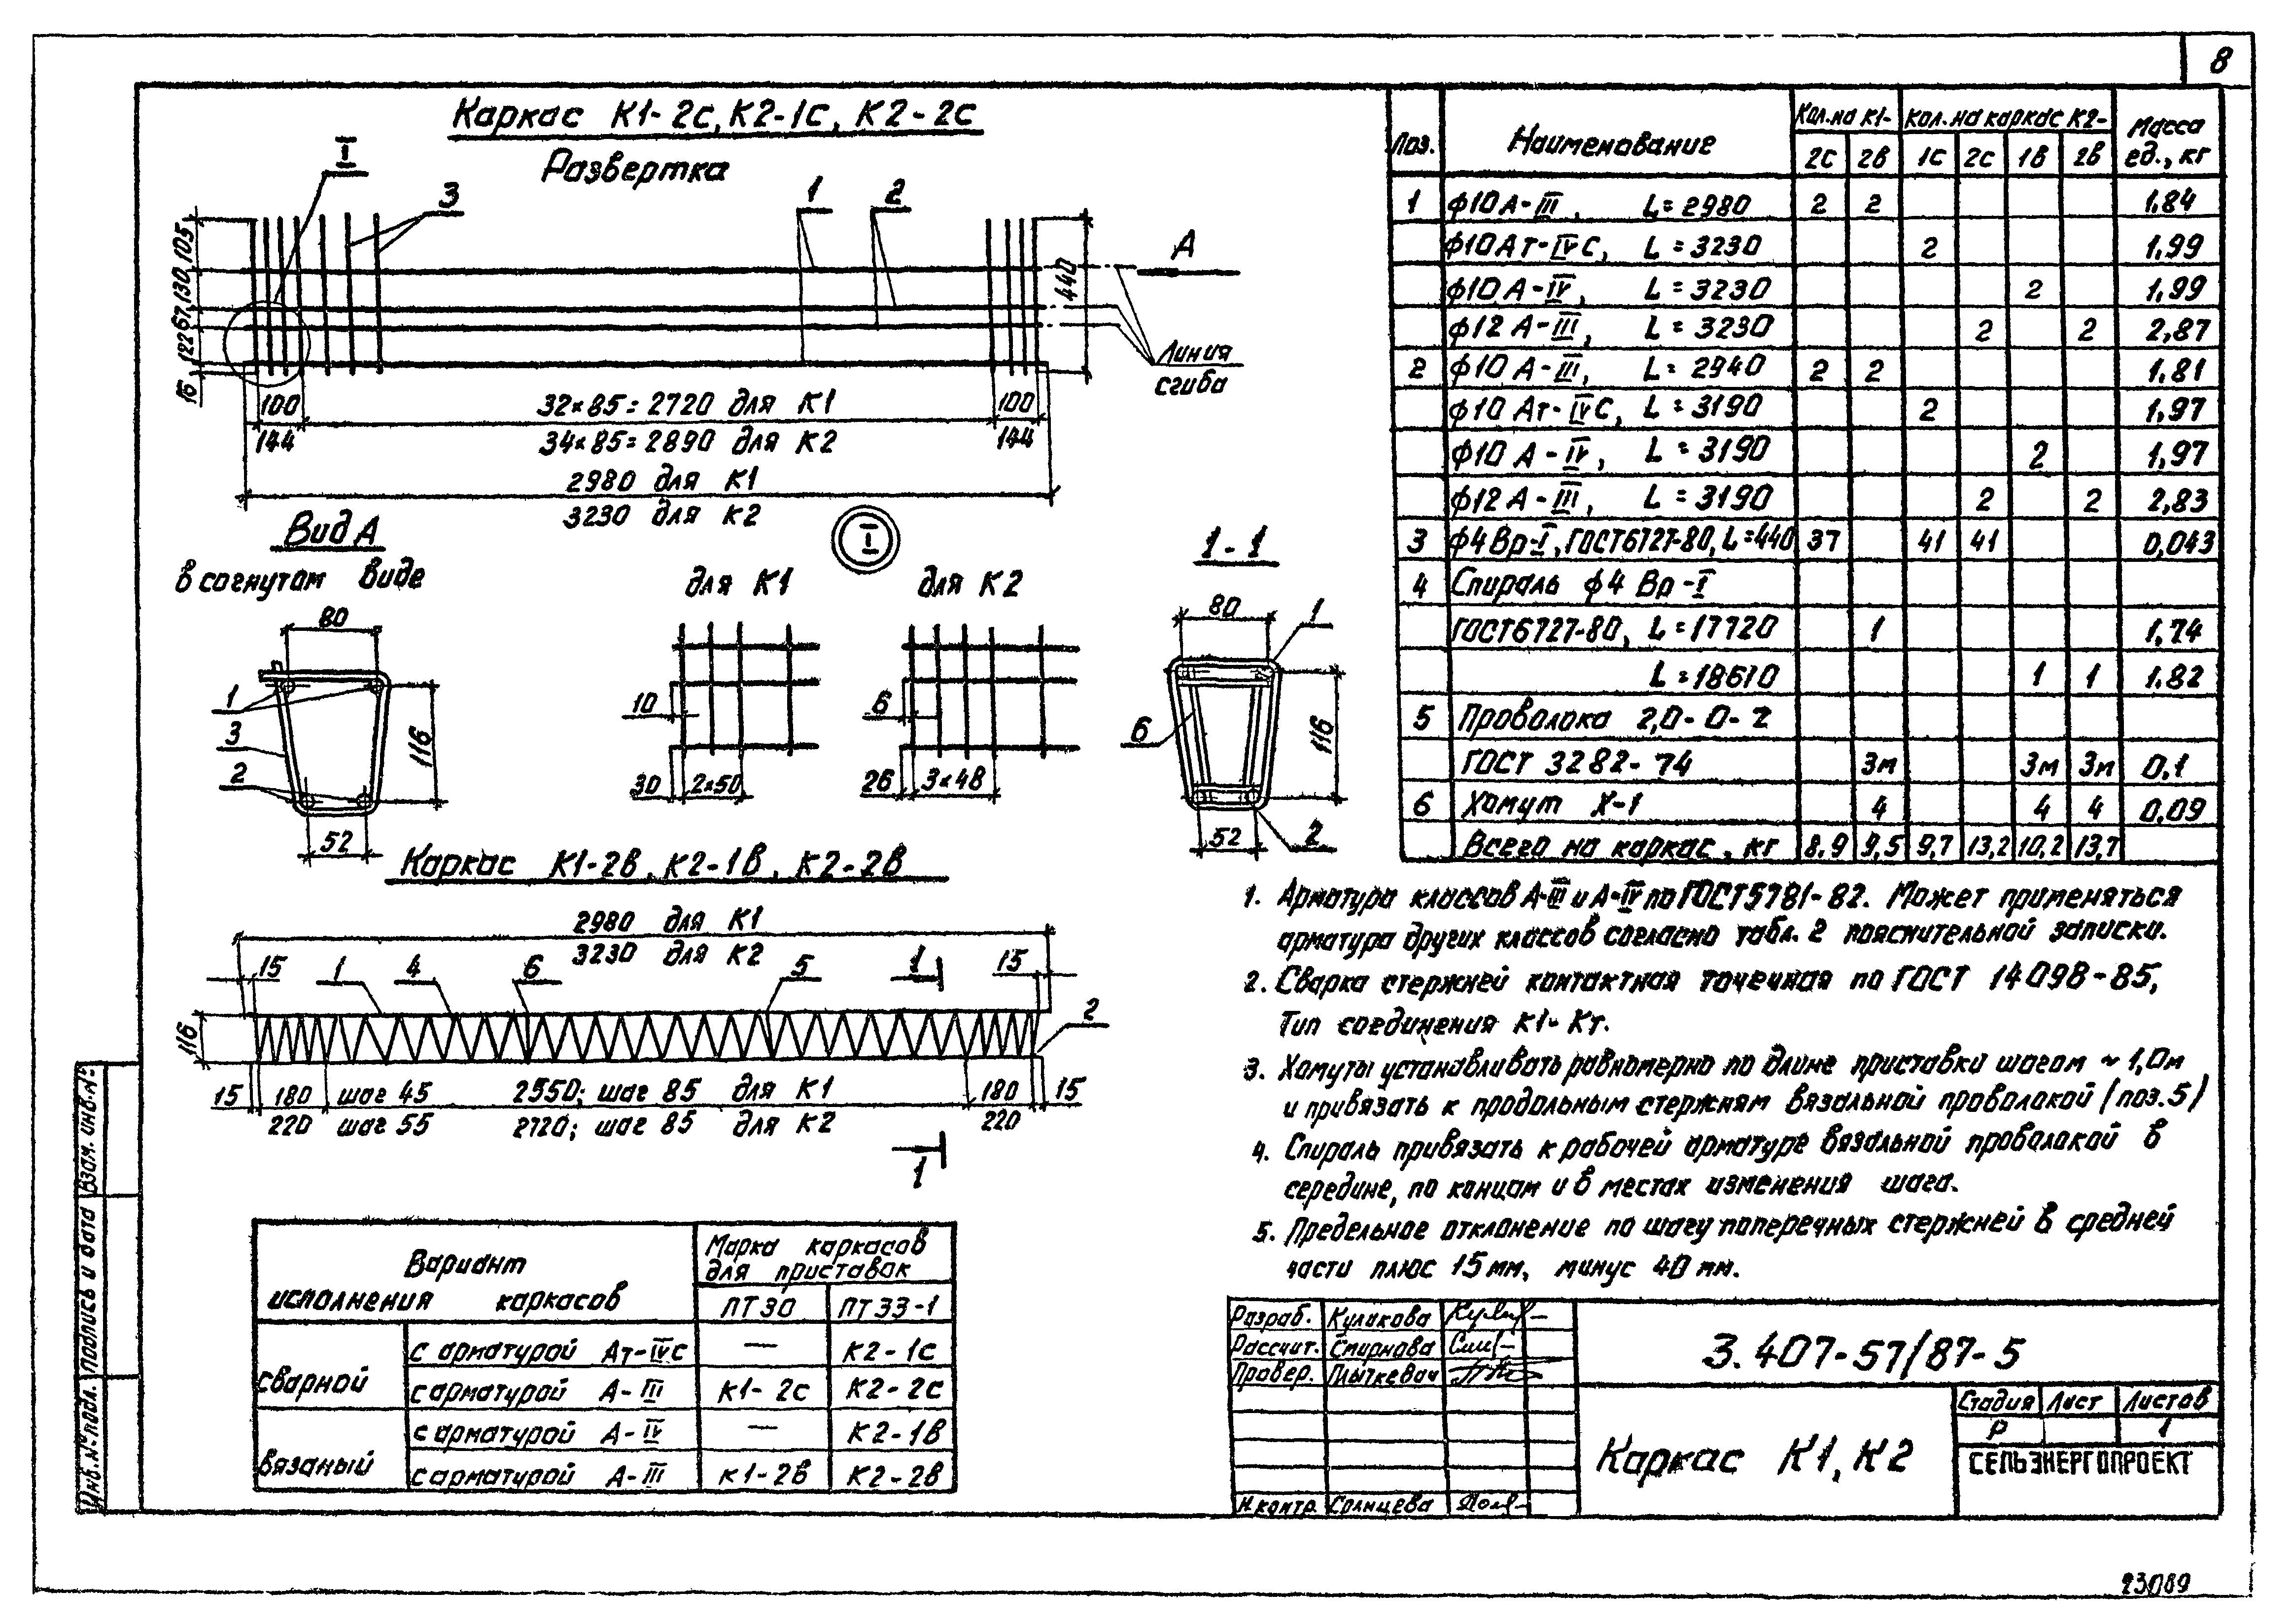 8
Каркас К1-2с, К2-1с, К2-2с
Развертка
I
3
1
2
А
105
130
67
122
16
440
Линия
сгиба
100
32×85=2720 для К1
100
144
34×85=2890 для К2
144
2980 для К1
3230 для К2
Вид А
в согнутом виде
80
1
3
2
116
52
I
для К1
10
30
2×50
для К2
6
26
3×48
1-1
80
1
6
116
52
2
Каркас К1-2в, К2-1в, К2-2в
2980 для К1
3230 для К2
15
1
4
6
5
1
15
2
116
15
180 шаг 45
2550; шаг 85 для К1
180
15
220 шаг 55
2720; шаг 85 для К2
220
1
Вариант исполнения каркасов
Марка каркасов для приставок
ПТ30
ПТ33-1
сварной
с арматурой Ат-IVс — К2-1с
с арматурой А-III К1-2с К2-2с
вязаный
с арматурой А-IV — К2-1в
с арматурой А-III К1-2в К2-2в
Поз. Наименование Кол.на К1- Кол.на каркас К2- Масса ед., кг
2с 2в 1с 2с 1в 2в
1 ф10А-III, L=2980 2 2 1.84
ф10Ат-IVС, L=3230 2 1.99
ф10А-IV, L=3230 2 1,99
ф12А-III, L=3230 2 2 2,87
2 ф10А-III, L=2940 2 2 1.81
ф10Ат-IVС, L=3190 2 1,97
ф10А-IV, L=3190 2 1,97
ф12А-III, L=3190 2 2 2,83
3 ф4Вр-I, ГОСТ6727-80, L=440 37 41 41 0,043
4 Спираль ф4 Вр-I
ГОСТ6727-80, L=17720 1 1,74
L=18610 1 1 1.82
5 Проволока 2,0-0-2
ГОСТ 3282-74 3м 3м 3м 0,1
6 Хомут Х-1 4 4 4 0,09
Всего на каркас, кг 8.9 9,5 9,7 13,2 10,2 13,7
1. Арматура классов А-III и А-IV по ГОСТ5781-82. Может применяться
арматура других классов согласно табл. 2 пояснительной записки.
2. Сварка стержней контактная точечная по ГОСТ 14098-85,
Тип соединения К1-Кт.
3. Хомуты устанавливать равномерно по длине приставки шагом ~ 1,0м
и привязать к продольным стержням вязальной проволокой (поз.5)
4. Спираль привязать к рабочей арматуре вязальной проволокой в
середине, по концам и в местах изменения шага.
5. Предельное отклонение по шагу поперечных стержней в средней
части плюс 15мм, минус 40мм.
Разраб. Куликова
Рассчит. Смирнова
Провер. Плыткевич
Н.контр. Солнцева
3.407-57/87-5
Каркас К1, К2
Стадия Лист Листов
Р 1
СЕЛЬЭНЕРГОПРОЕКТ
Инв.№подл. Подпись и дата Взам.инв.№
23089